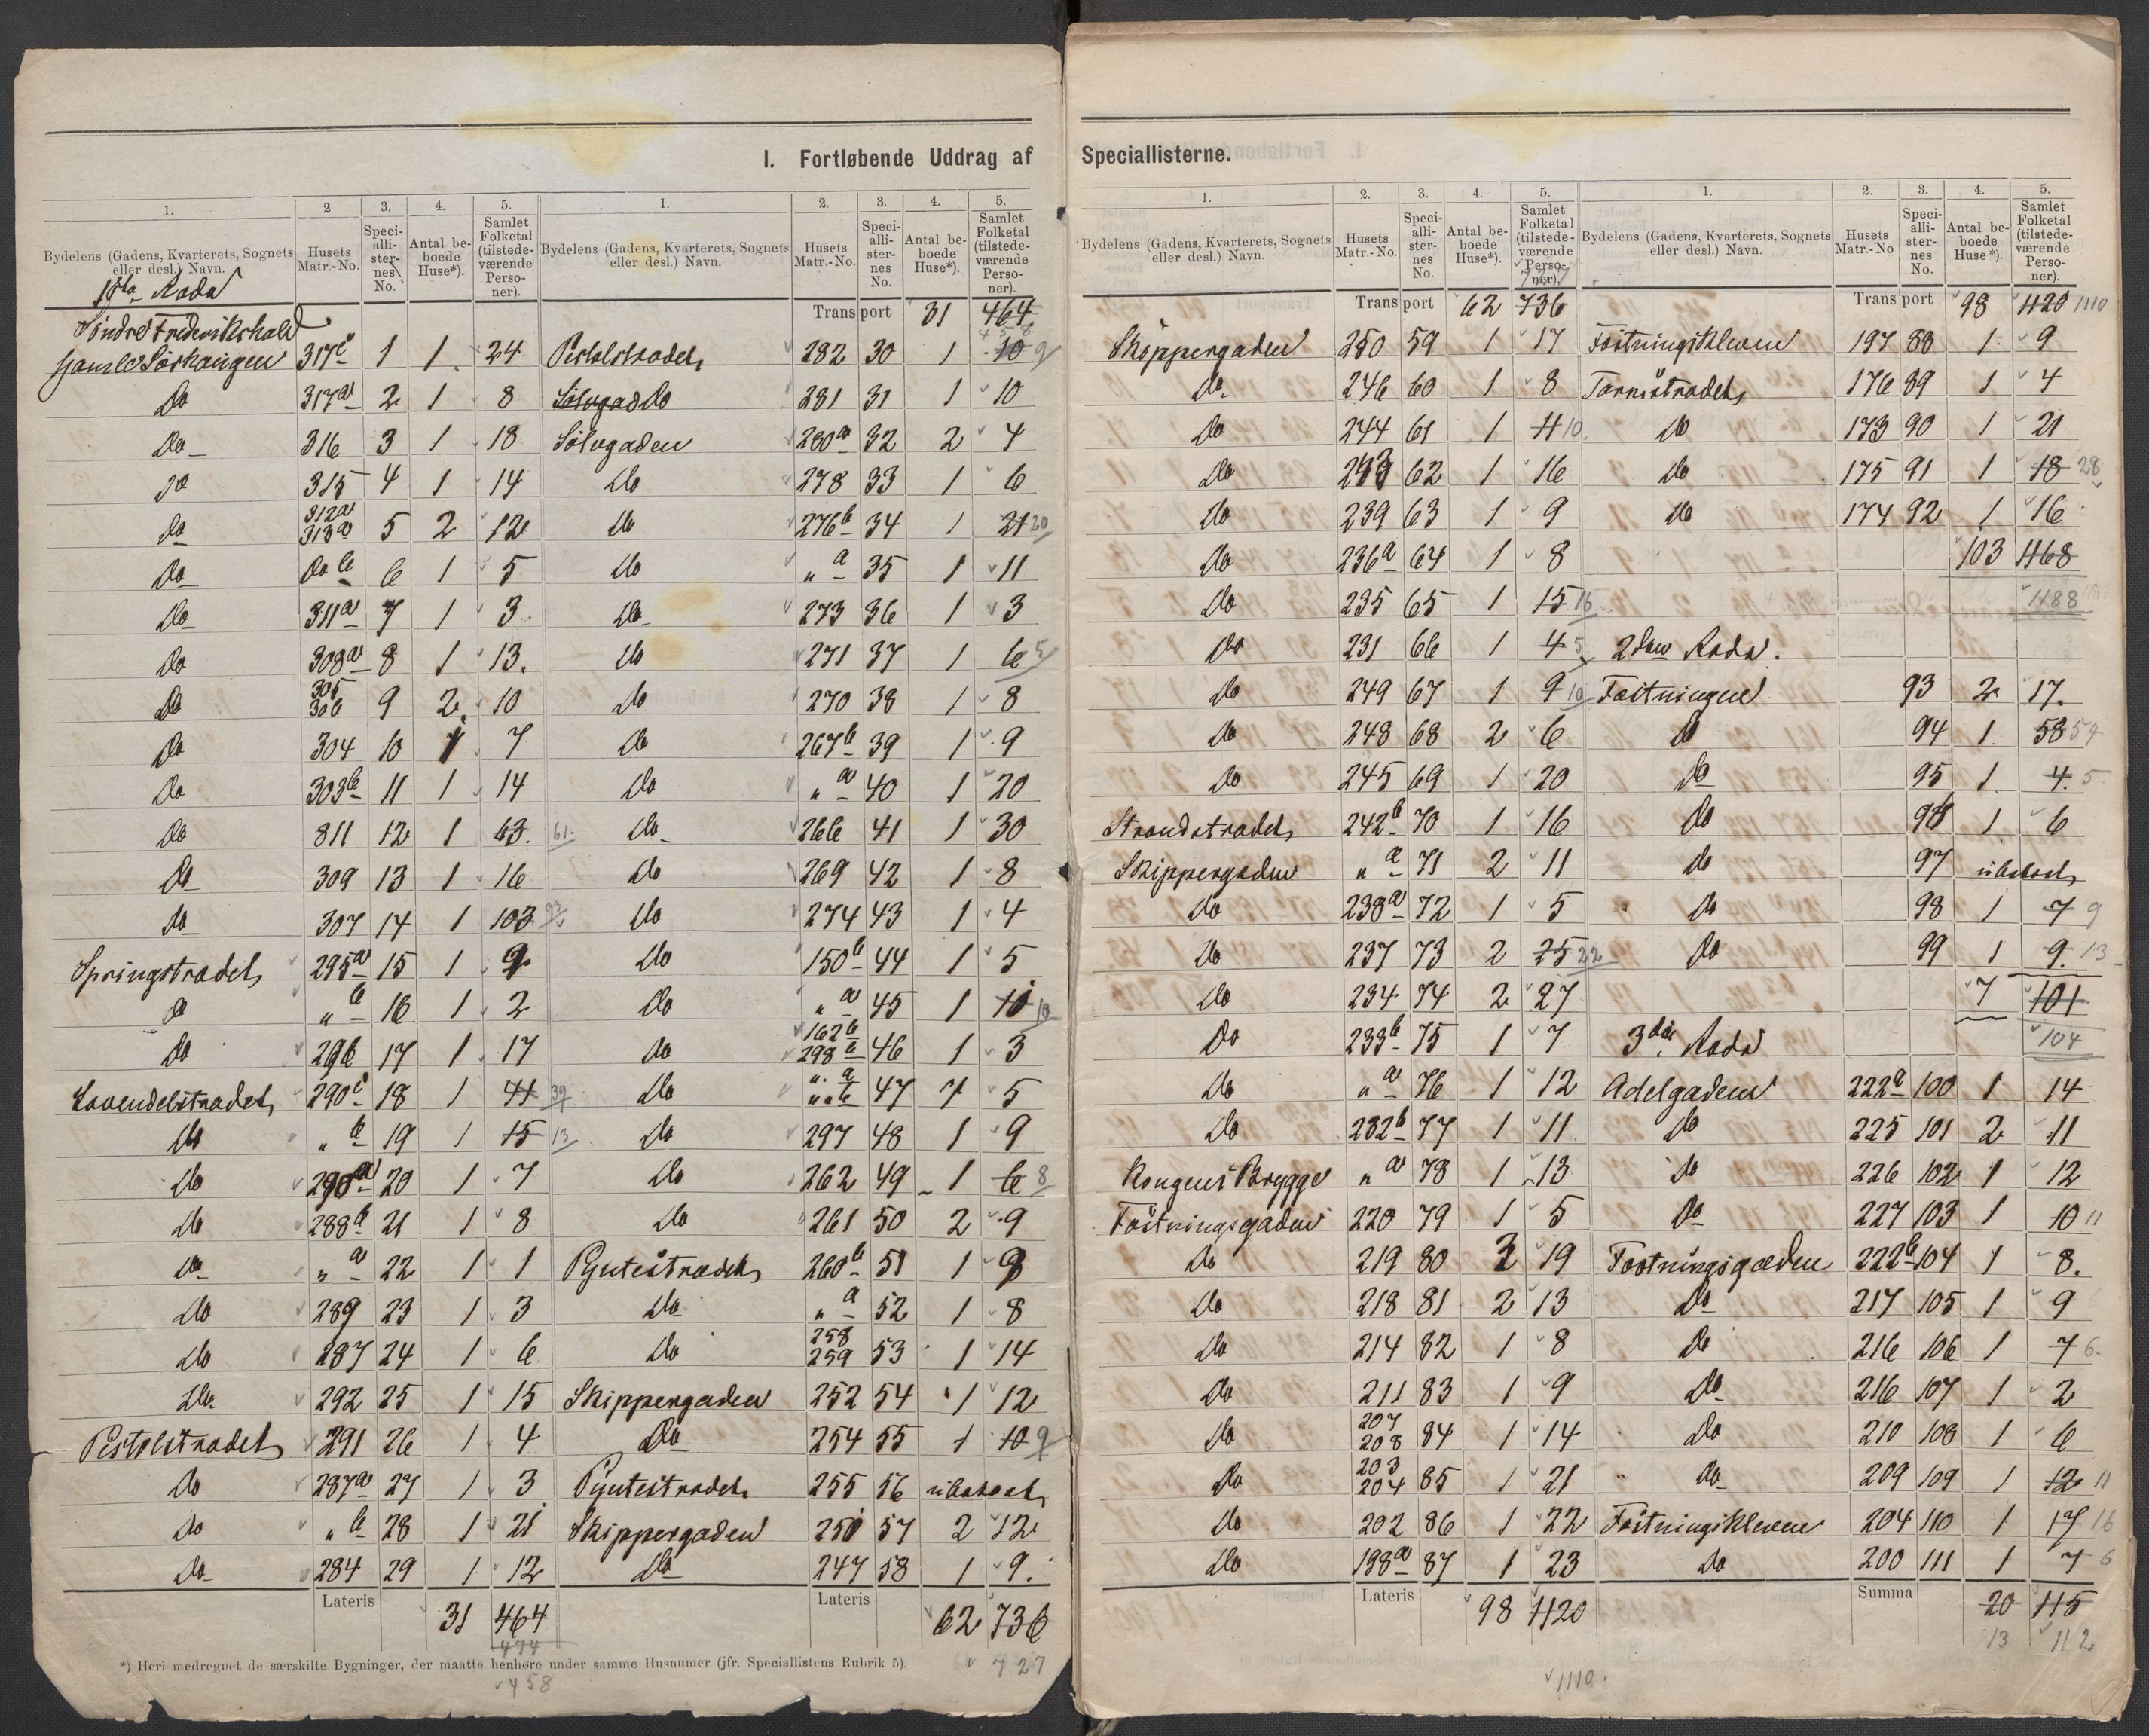 I. Fortløbende Uddrag af Speciallisterne.
1. 2 3. 4. 5. 1. 2. 3. 4. 5.
Bydelens (Gadens, Kvarterets, Sognets eller desl.) Navn. Husets Matr.-No. Speciallisternes No. Antal beboede Huse*). Samlet Folketal (tilstedeværende Personer). Bydelens (Gadens, Kvarterets, Sognets eller desl.) Navn. Husets Matr.-No. Speciallisternes No. Antal beboede Huse*). Samlet Folketal (tilstedeværende Personer).
1ste Rode
Søndre Frederikshald
Gamle 317c 1 1 24
Do 317a 2 1 8
Do 316 3 1 18
Do 315 4 1 14
Do 312a 313a 5 2 12
Do Do b 6 1 5
Do 311a 7 1 3
Do 308a 8 1 13.
Do 305 306 9 2 10
Do 304 10 1 7
Do 303b 11 1 14
Do 811 12 1 63. 61
Do 309 13 1 16
Do 307 14 1 103 93
Springstrædet 295a 15 1 9
Do " b 16 1 2
Do 296 17 1 17
Lavendelstrædet 290c 18 1 41 39
Do " b 19 1 15 13
Do 290a 20 1 7
Do 288b 21 1 8
Do " a 22 1 1
Do 289 23 1 3
Do 287 24 1 6
Do 292 25 1 15
Pistolstrædet 291 26 1 4
Do 287a 27 1 3
Do " b 28 1 21
Do 284 29 1 12
Lateris 31 464
474
458
Transport 31 464
458
Pistolstrædet 282 30 1 10 9
Sølvgad Do 281 31 1 10
Sølvgaden 280a 32 2 4
Do 278 33 1 6
Do 276b 34 1 21 20
Do " a 35 1 11
Do 273 36 1 3
Do 271 37 1 6 5
Do 270 38 1 8
Do 267b 39 1 9
Do " a 40 1 20
Do 266 41 1 30
Do 269 42 1 8
Do 274 43 1 4
Do 150b 44 1 5
Do " a 45 1 10 10
Do 162b 298b 46 1 3
Do " a " b 47 1 5
Do 297 48 1 9
Do 262 49 1 6 8
Do 261 50 2 9
Pyntestrædet 260b 51 1 9
Do " a 52 1 8
Do 258 259 53 1 14
Skippergaden 252 54 1 12
Do 254 55 1 10 9
Pyntestrædet 255 56 ubeboet
Skippergaden 251 57 2 12
Do 247 58 1 9.
Lateris 62 736
727
*) Heri medregnet de særskilte Bygninger, der maatte henhøre under samme Husnumer (jfr. Speciallistens Rubrik 5).
1. 2. 3. 4. 5. 1. 2. 3. 4. 5.
Bydelens (Gadens, Kvarterets, Sognets eller desl.) Navn. Husets Matr.-No. Speciallisternes No. Antal beboede Huse*). Samlet Folketal (tilstedeværende Personer). Bydelens (Gadens, Kvarterets, Sognets eller desl.) Navn. Husets Matr.-No Speciallisternes No. Antal beboede Huse*). Samlet Folketal (tilstedeværende Personer).
Transport 62 736
Skippergaden 250 59 1 17
Do 246 60 1 8
Do 244 61 1 11 10
Do 243 62 1 16
Do 239 63 1 9
Do 236a 64 1 8
Do 235 65 1 15 16
Do 231 66 1 4 5
Do 249 67 1 9 10
Do 248 68 2 6
Do 245 69 1 20
Strandstrædet 242b 70 1 16
Skippergaden " a 71 2 11
Do 238a 72 1 5
Do 237 73 2 25 22
Do 234 74 2 27
Do 233b 75 1 7
Do " a 76 1 12
Do 232b 77 1 11
Kongens Brygge " a 78 1 13
Fæstningsgaden 220 79 1 5
Do 219 80 3 19
Do 218 81 2 13
Do 214 82 1 8
Do 211 83 1 9
Do 207 208 84 1 14
Do 203 204 85 1 21
Do 202 86 1 22
Do 198a 87 1 23
Lateris 98 1120
1110.
Transport 98 1120 1110
Fæstningskleven 197 88 1 9
Taarnstrædet 176 89 1 4
Do 173 90 1 21
Do 175 91 1 18 28
Do 174 92 1 16
103 1168
1188
2den Rode.
Fæstningen 93 2 17.
Do 94 1 58 59
Do 95 1 4 5
Do 96 1 6
Do 97 ubeboet
Do 98 1 7 9
Do 99 1 9 13
7 101
104
3die Rode
Adelgaden 222a 100 1 14
Do 225 101 2 11
Do 226 102 1 12
Do 227 103 1 10 11
Fæstningsgaden 222b 104 1 8.
Do 217 105 1 9
Do 216 106 1 7 6
Do 216 107 1 2
Do 210 108 1 6
Do 209 109 1 12 11
Fæstningskleven 204 110 1 17 16
Do 200 111 1 7 6
Summa 20 115
13 112